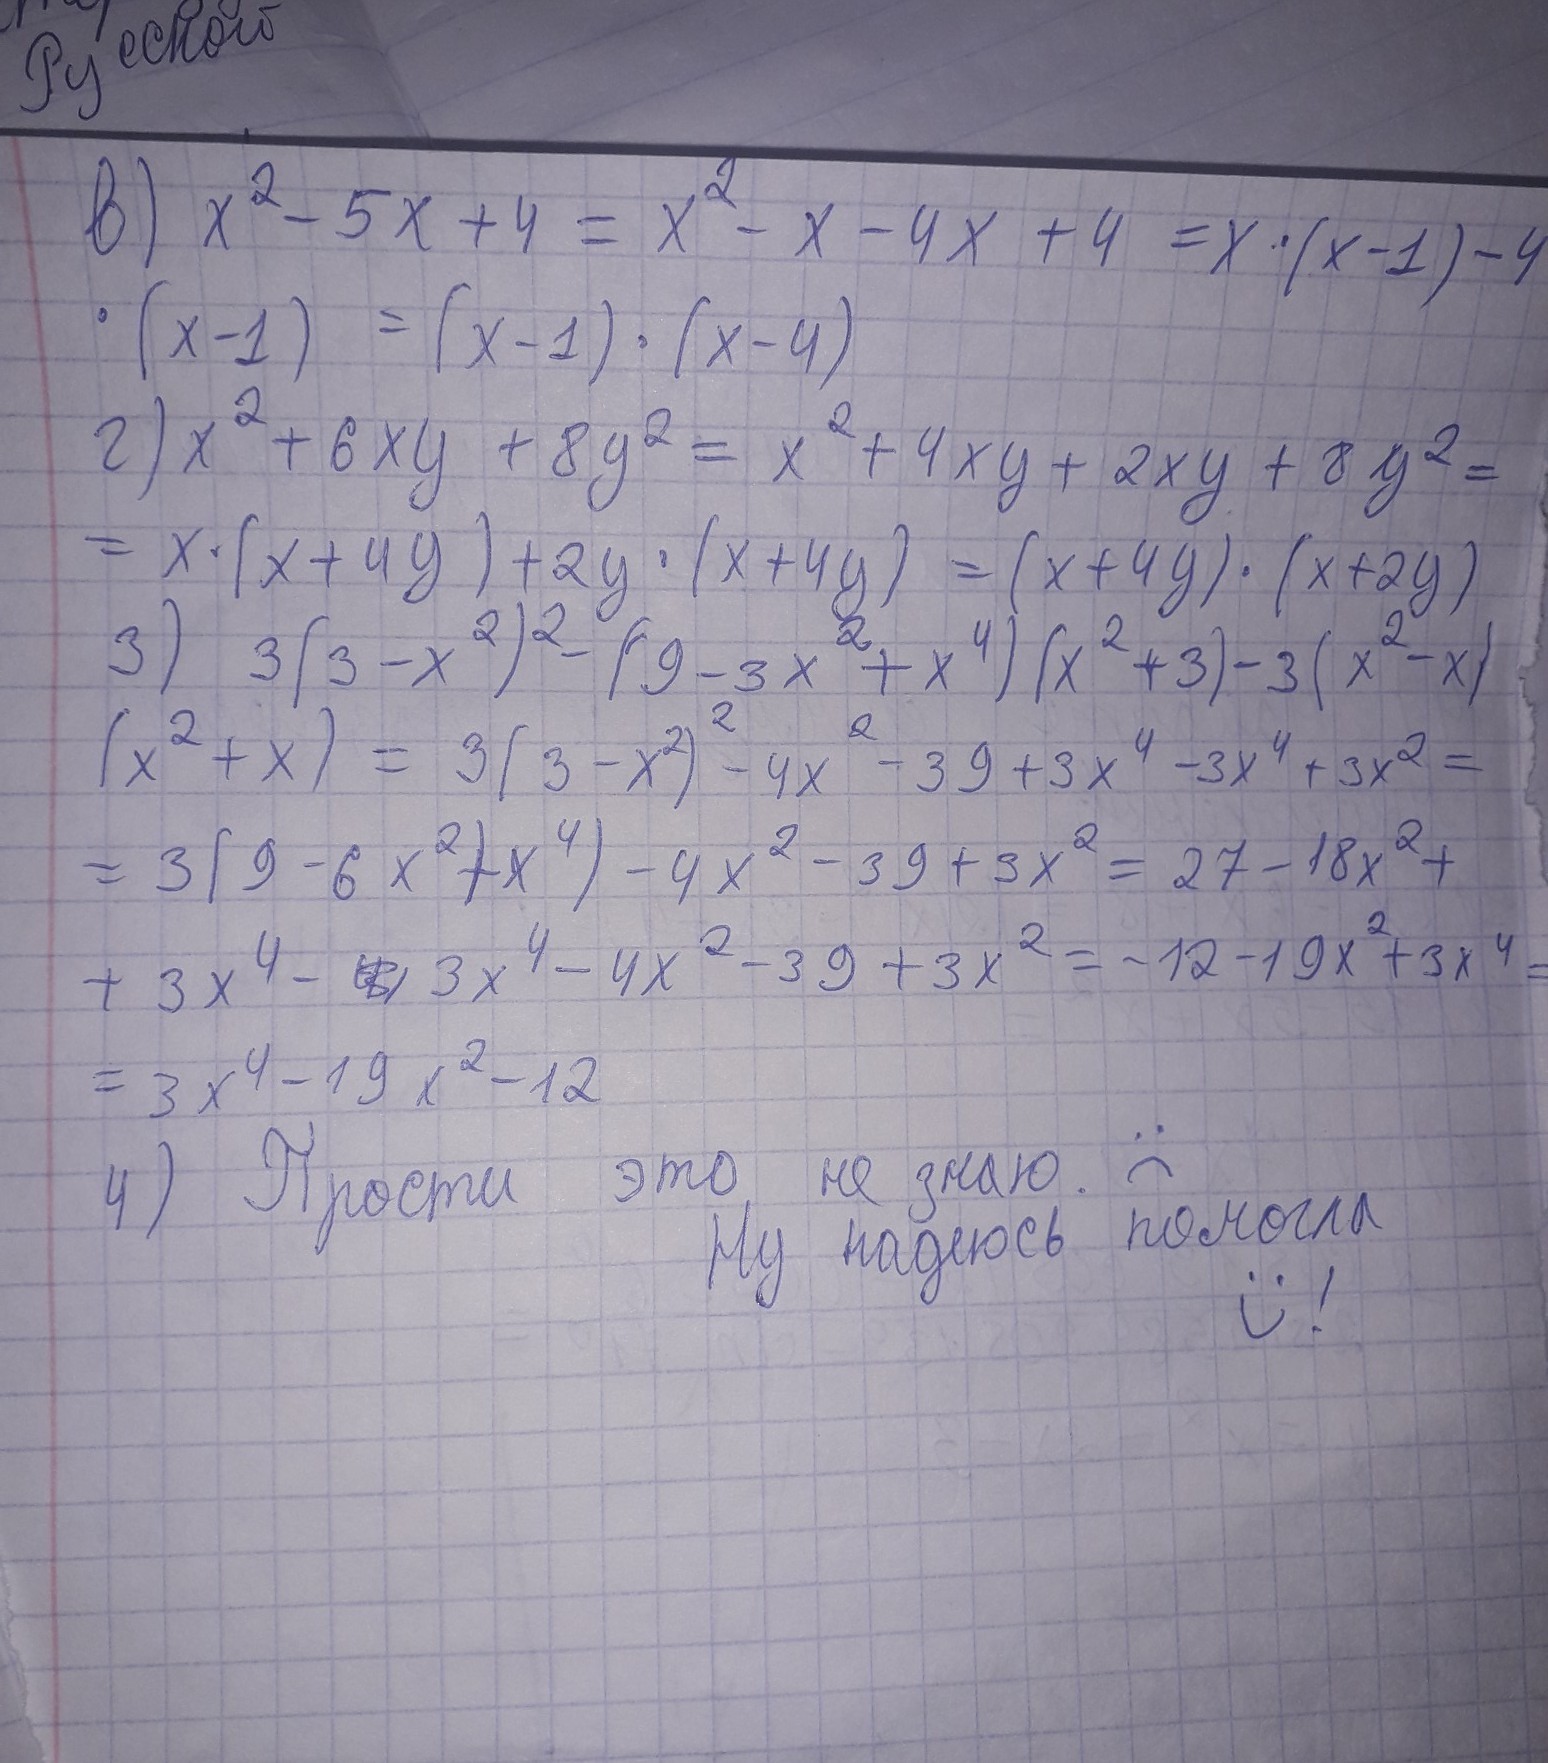 Русской
в) x² - 5x + 4 = x² - x - 4x + 4 = x · (x-1) - 4
· (x-1) = (x-1) · (x-4)
г) x² + 6xy + 8y² = x² + 4xy + 2xy + 8y² =
= x · (x+4y) + 2y · (x+4y) = (x+4y) · (x+2y)
3) 3(3-x²)² - (9-3x²+x⁴)(x²+3) - 3(x²-x)
(x²+x) = 3(3-x²)² - 4x² - 39 + 3x⁴ - 3x⁴ + 3x² =
= 3(9-6x²+x⁴) - 4x² - 39 + 3x² = 27 - 18x² +
+ 3x⁴ - 3x⁴ - 4x² - 39 + 3x² = -12 - 19x² + 3x⁴ =
= 3x⁴ - 19x² - 12
4) Прости это не знаю. :(
Ну надеюсь помогла
:)!